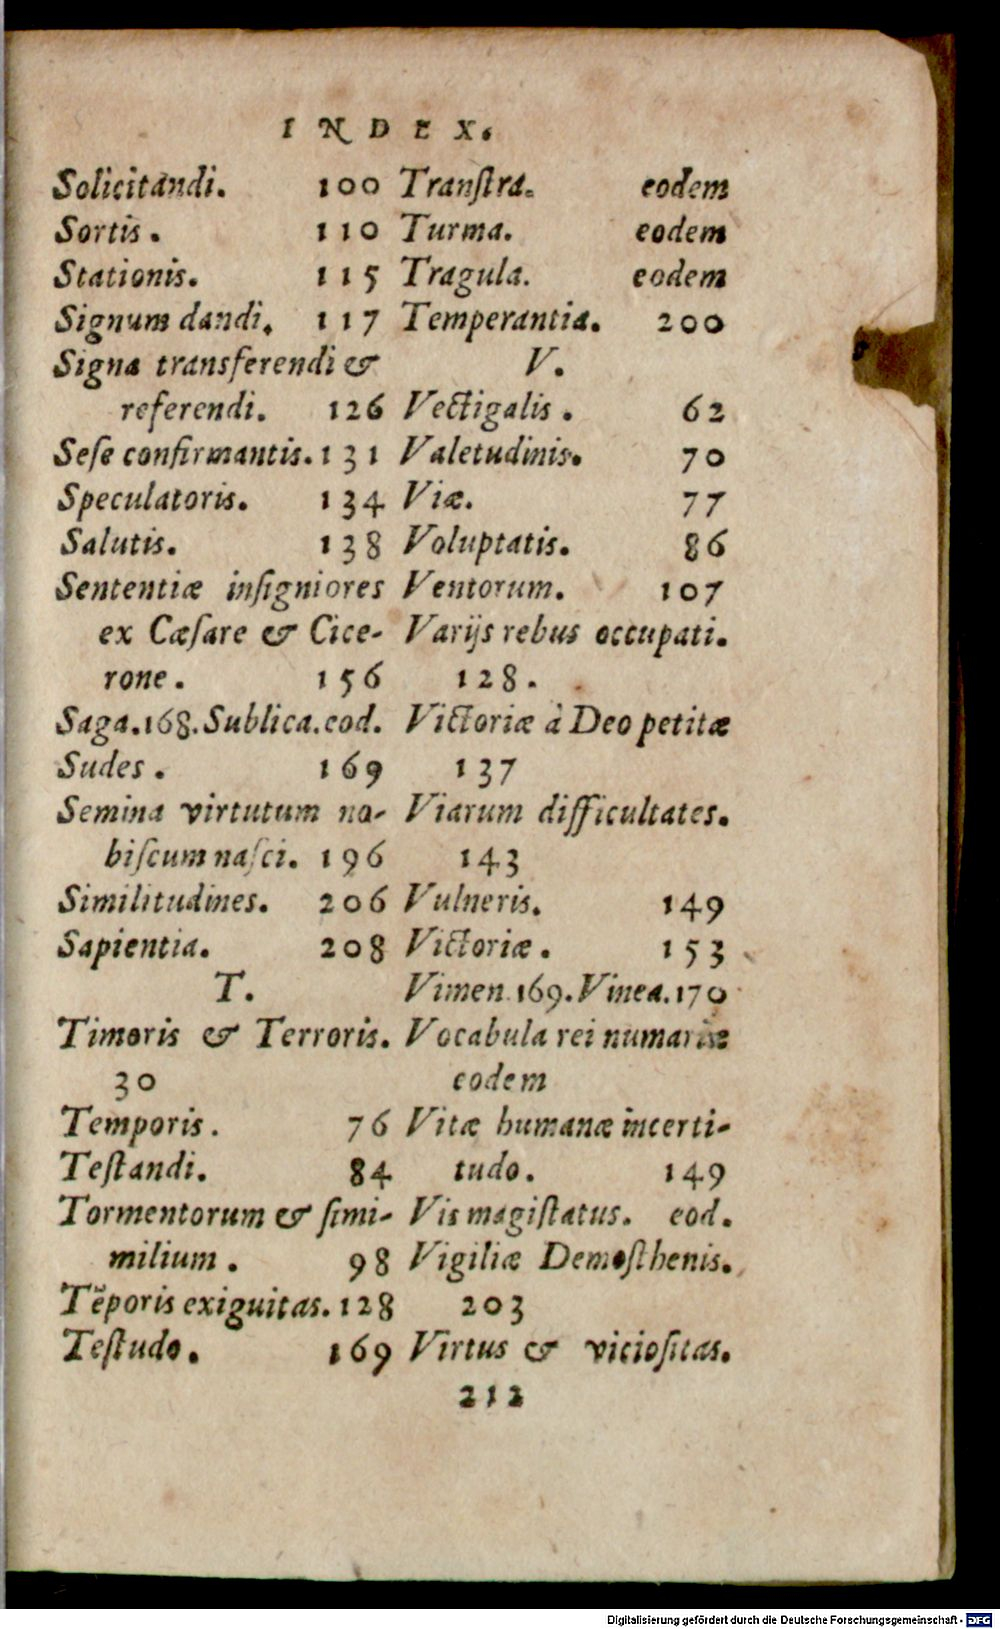 INDEX.
Solicitandi. 100
Sortis. 110
Stationis. 115
Signum dandi. 117
Signa transferendi &
referendi. 126
Seſe confirmantis. 131
Speculatoris. 134
Salutis. 138
Sententiæ inſigniores
ex Cæſare & Cice-
rone. 156
Saga. 168. Sublica. eod.
Sudes. 169
Semina virtutum no-
biſcum naſci. 196
Similitudines. 206
Sapientia. 208
T.
Timoris & Terroris.
30
Temporis. 76
Teſtandi. 84
Tormentorum & ſimi-
milium. 98
Tẽporis exiguitas. 128
Teſtudo. 169
Tranſtra. eodem
Turma. eodem
Tragula. eodem
Temperantia. 200
V.
Vectigalis. 62
Valetudinis. 70
Viæ. 77
Voluptatis. 86
Ventorum. 107
Varijs rebus occupati.
128.
Victoriæ à Deo petitæ
137
Viarum difficultates.
143
Vulneris. 149
Victoriæ. 153
Vimen. 169. Vinea. 170
Vocabula rei numariæ
eodem
Vitæ humanæ incerti-
tudo. 149
Vis magiſtatus. eod.
Vigiliæ Demoſthenis.
203
Virtus & vicioſitas.
212
Digitalisierung gefördert durch die Deutsche Forschungsgemeinschaft - DFG